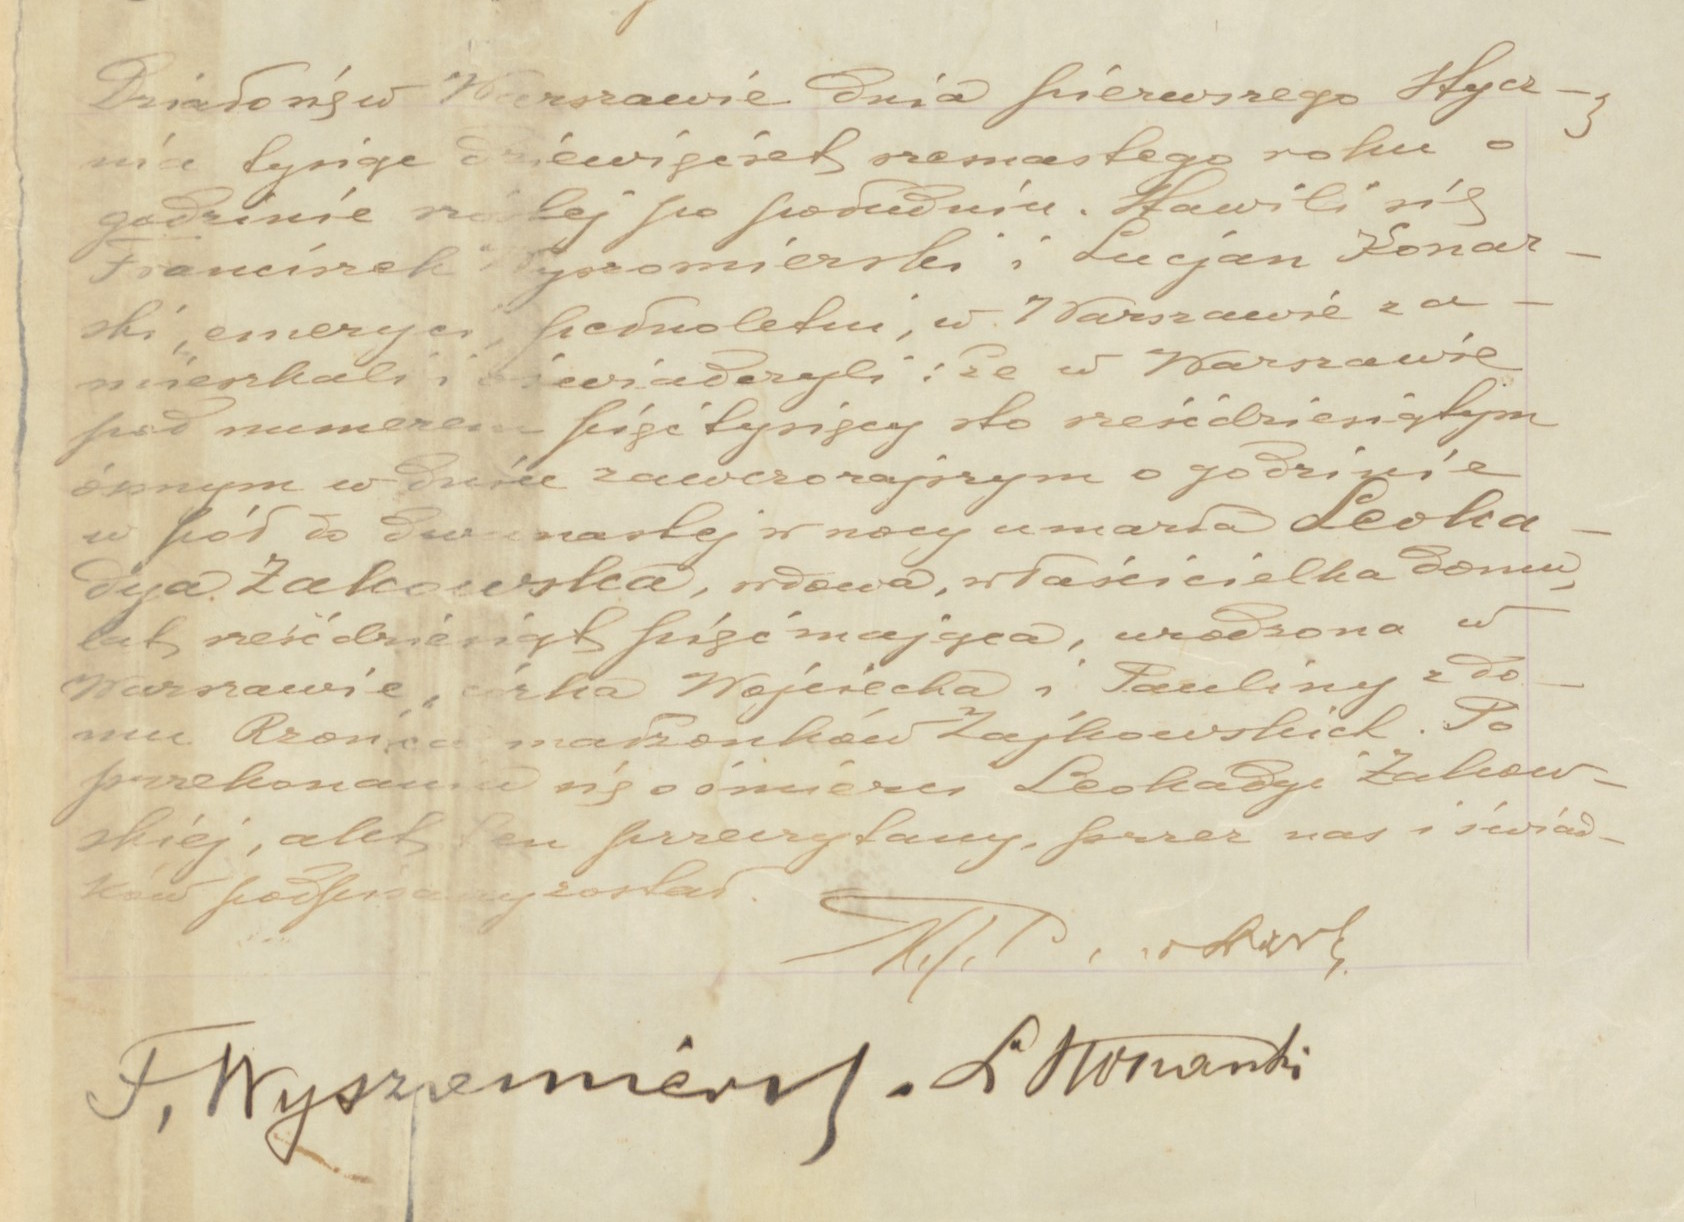 Działo się w Warszawie dnia pierwszego stycz-
nia tysiąc dziewięćset szesnastego roku o
godzinie szóstej po południu. Stawili się
Franciszek Wyszomierski i Lucjan Konar-
ski, emeryci, pełnoletni, w Warszawie za-
mieszkali i oświadczyli: że w Warszawie
pod numerem pięć tysięcy sto sześćdziesiątym
ósmym w dniu zawczorajszym o godzinie
w pół do dwunastej w nocy umarła Leoka-
dya Żakowska, wdowa, właścicielka domu,
lat sześćdziesiąt pięć mająca, urodzona w
Warszawie, córka Wojciecha i Pauliny z do-
mu małżonków Zajkowskich. Po
przekonaniu się o śmierci Leokadyi Żakow-
skiej, akt ten przeczytany, przez nas i świad-
ków podpisany został.
F. Wyszomierski. L Konarski